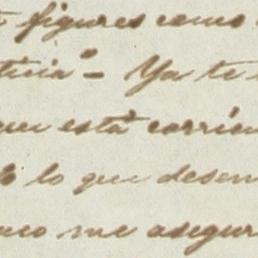 figures como
ticia" - Ya te
que está corrien
lo que desem
me asegur